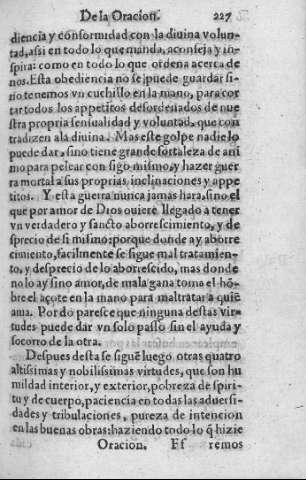 De la Oracion. 227
diencia y conformidad con la diuina volun-
tad, assi en todo lo que manda, aconseja y in-
spira: como en todo lo que ordena acerca de
nos. Esta obediencia no se puede guardar si-
no tenemos vn cuchillo en la mano, para cor
tar todos los appetitos desordenados de nue
stra propria sensualidad y voluntad, que con
tradizen ala diuina. Mas este golpe nadie lo
puede dar, sino tiene grande fortaleza de ani
mo para pelear con sigo mismo, y hazer guer
ra mortal a sus proprias inclinaciones y appe
titos. Y esta guerra nunca jamas hara, sino el
que por amor de Dios ouiere llegado a tener
vn verdadero y sancto aborrescimiento, y de
sprecio de si mismo: porque donde ay aborre
cimiento, facilmente se sigue mal tratamien-
to, y desprecio de lo aborrescido, mas donde
no lo ay sino amor, de mala gana tome el hõ-
bre el açote en la mano para maltratar a quiẽ
ama. Por do paresce que ninguna destas vir-
tudes puede dar vn solo passo sin el ayuda y
socorro de la otra.
Despues desta se siguẽ luego otras quatro
altissimas y nobilissimas virtudes, que son hu
mildad interior, y exterior, pobreza de spiri-
tu y de cuerpo, paciencia en todas las aduersi-
dades y tribulaciones, pureza de intencion
en las buenas obras: haziendo todo lo q̃ hizie
Oracion. Ff remos